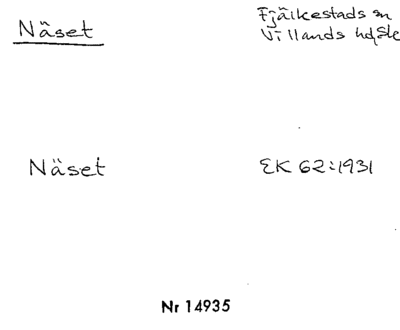 Näset
Fjälkestads sn
Villands hd, Sk
Näset
EK 62:1931
Nr 14935